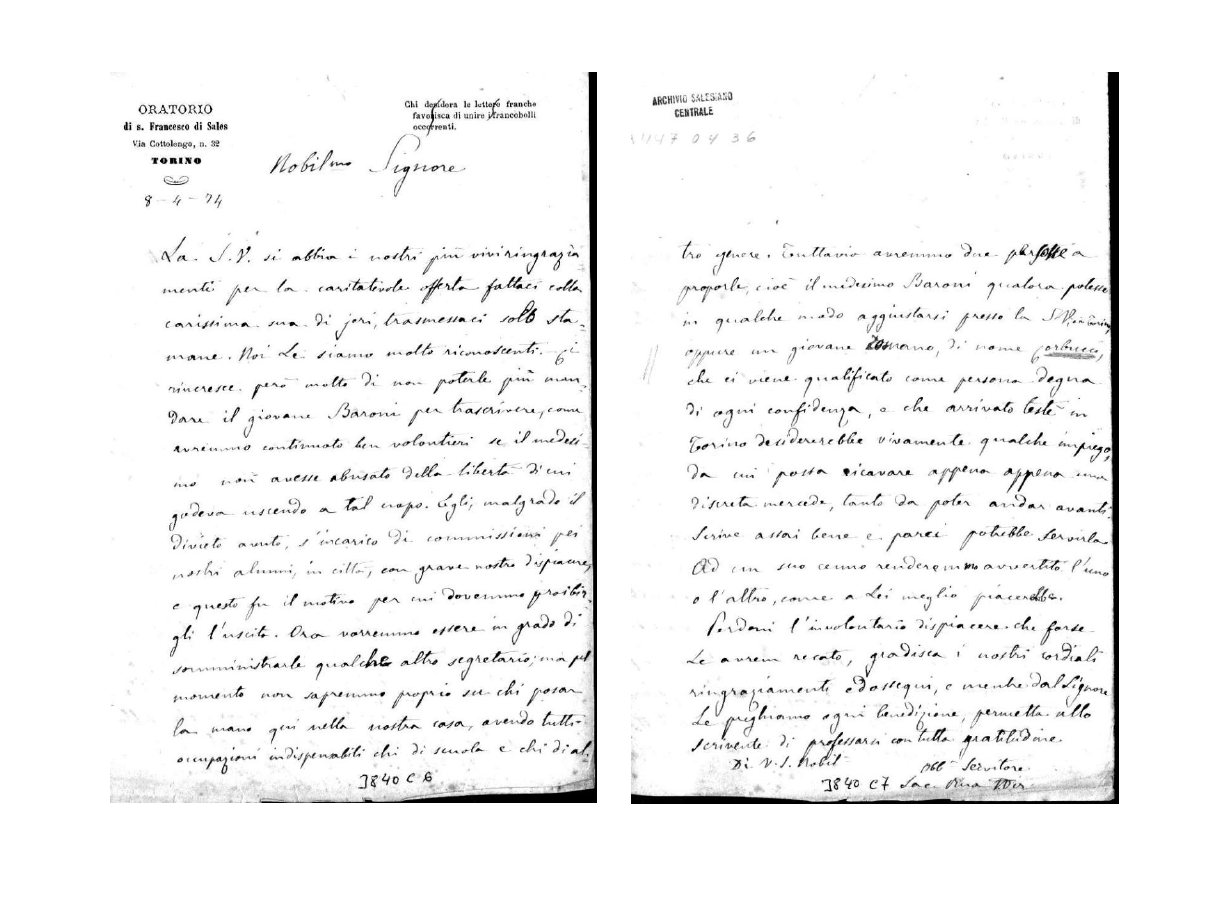 ORATORIO
di s. Francesco di Sales
Via Cottolengo, n. 32
TORINO
8 - 4 - 74
Chi desidera le lettere franche
favorisca di unire i francobolli
occorrenti.
Nobilmo Signore
La S.V. si abbia i nostri più vivi ringrazia
menti per la caritatevole offerta fattaci colla
carissima sua di jeri, trasmessaci solo sta-
mane. Noi Le siamo molto riconoscenti. Ci
rincresce però molto di non poterle più man-
dare il giovane Baroni per trascrivere, come
avremmo continuato ben volontieri se il medesi-
mo non avesse abusato della libertà di cui
godeva uscendo a tal uopo. Egli, malgrado il
divieto avuto, s'incaricò di commissioni pei
nostri alunni, in città, con grave nostro dispiacere,
e questo fu il motivo per cui dovemmo proibir-
gli l'uscita. Ora vorremmo essere in grado di
somministrarle qualche altro segretario; ma pel
momento non sapremmo proprio su chi posar
la mano qui nella nostra casa, avendo tutti
occupazioni indispensabili chi di scuola e chi di al
3840 C 6
ARCHIVIO SALESIANO
CENTRALE
447 04 36
tro genere. Tuttavia avremmo due persone a
proporle, cioè il medesimo Baroni qualora potesse
in qualche modo aggiustarsi presso la S.V. in Torino,
oppure un giovane romano, di nome Corbucci,
che ci viene qualificato come persona degna
di ogni confidenza, e che arrivato testè in
Torino desidererebbe vivamente qualche impiego,
da cui possa ricavare appena appena una
discreta mercede, tanto da poter andar avanti.
Scrive assai bene e parci potrebbe servirla
Ad un suo cenno renderemmo avvertito l'uno
o l'altro, come a Lei meglio piacerebbe.
Perdoni l'involontario dispiacere che forse
Le avrem recato, gradisca i nostri cordiali
ringraziamenti ed ossequi, e mentre dal Signore
Le preghiamo ogni benedizione, permetta allo
scrivente di professarsi con tutta gratitudine
Di V. S. Nobil
Obb Servitore
3840 C7 Sac. Rua